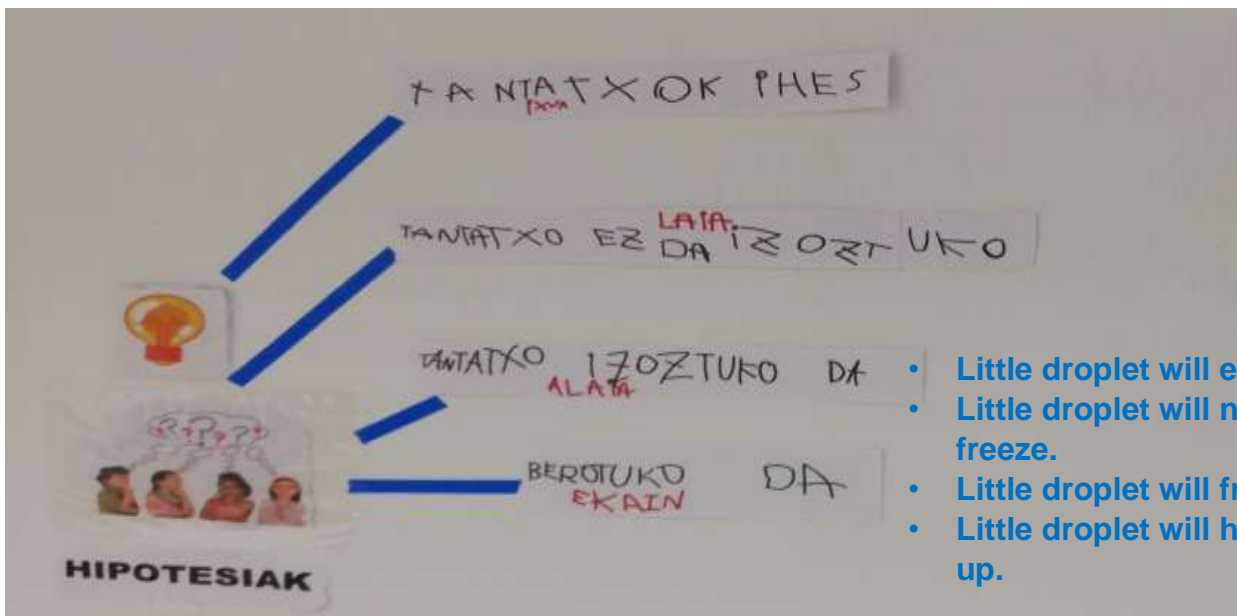 TANTATXOK IHES
TANTATXO EZ DA IZOZTUKO
LAIA
TANTATXO IZOZTUKO DA
ALAIA
BEROTUKO DA
EKAIN
? ? ? ? ?
HIPOTESIAK
• Little droplet will e
• Little droplet will n
freeze.
• Little droplet will fr
• Little droplet will h
up.